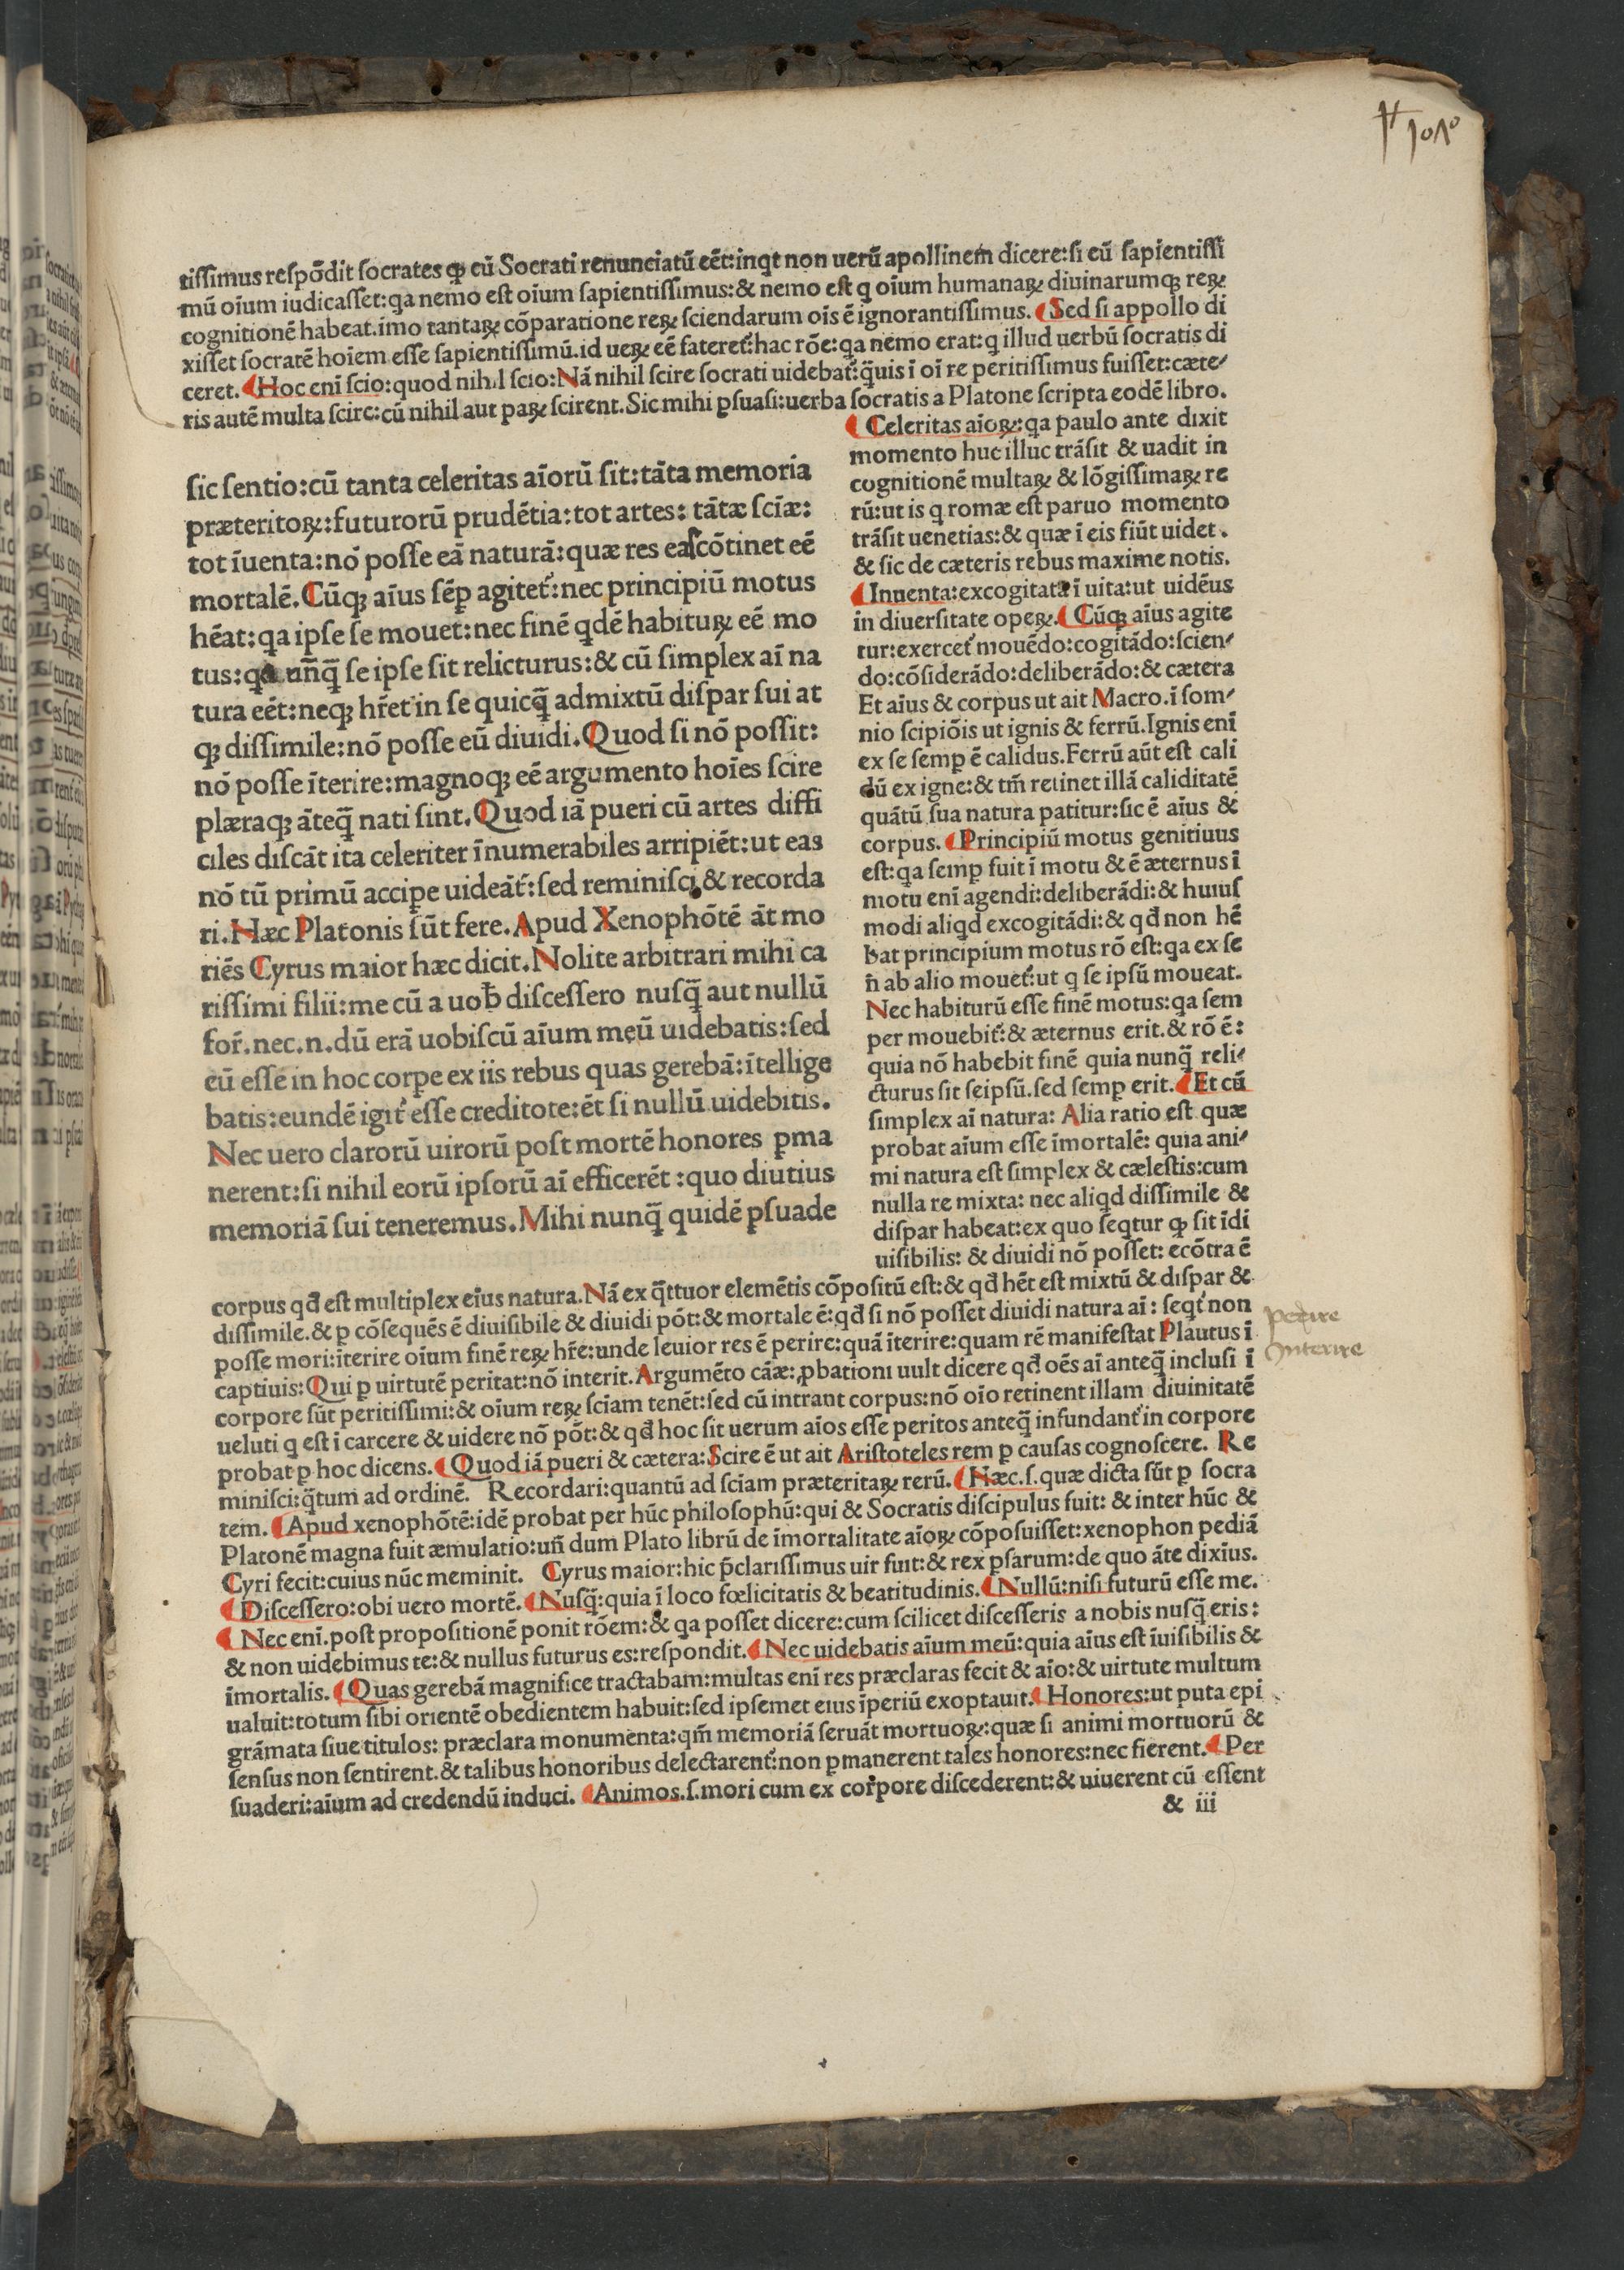 tissimus respōdit socrates ꝙ cū Socrati renunciatū eēt:inqt non uerū apollinem dicere:si eū sapientissi
mū oīum iudicasset:qa nemo est oīum sapientissimus:& nemo est q oīum humanaꝝ diuinarumqꝫ reꝝ
cognitionē habeat.imo tantaꝝ cōparatione reꝝ sciendarum oīs ē ignorantissimus. ¶Sed si appollo di
xisset socratē hoīem esse sapientissimū.id ueꝝ eē fateret̄:hac rōe:qa nemo erat:q illud uerbū socratis di
ceret. ¶Hoc enī scio:quod nihil scio:Nā nihil scire socrati uidebat̄:q̄uis ī oī re peritissimus fuisset:cæte-
ris autē multa scire:cū nihil aut paꝝ scirent.Sic mihi ꝑsuasi:uerba socratis a Platone scripta eodē libro.
sic sentio:cū tanta celeritas aīorū sit:tāta memoria
præteritoꝝ:futurorū prudētia:tot artes: tātæ scīæ:
tot īuenta:nō posse eā naturā:quæ res eas cōtinet eē
mortalē.Cūqꝫ aīus sēꝑ agitet̄:nec principiū motus
hēat:qa ipse se mouet:nec finē qdē habituꝝ eē mo
tus:qa unq̄ se ipse sit relicturus:& cū simplex aī na
tura eēt:neqꝫ hr̄et in se quicq̄ admixtū dispar sui at
qꝫ dissimile:nō posse eū diuidi.Quod si nō possit:
nō posse īterire:magnoqꝫ eē argumento hoīes scire
plæraqꝫ āteq̄ nati sint.Quod iā pueri cū artes diffi
ciles discāt ita celeriter īnumerabiles arripiēt:ut eas
nō tū primū accipe uideāt̄:sed reminisci & recorda
ri.Hæc Platonis sūt fere.Apud Xenophōtē āt mo
riēs Cyrus maior hæc dicit.Nolite arbitrari mihi ca
rissimi filii:me cū a uob̄ discessero nusq̄ aut nullū
for̄.nec.n.dū erā uobiscū aīum meū uidebatis:sed
eū esse in hoc corpe ex iis rebus quas gerebā:ītellige
batis:eundē igit̄ esse creditote:ēt si nullū uidebitis.
Nec uero clarorū uirorū post mortē honores ꝑma
nerent:si nihil eorū ipsorū aī efficerēt :quo diutius
memoriā sui teneremus.Mihi nunq̄ quidē ꝑsuade
¶Celeritas aīoꝝ:qa paulo ante dixit
momento huc illuc trāsit & uadit in
cognitionē multaꝝ & lōgissimaꝝ re
rū:ut is q romæ est paruo momento
trāsit uenetias:& quæ ī eis fiūt uidet.
& sic de cæteris rebus maxime notis.
¶Inuenta:excogitata ī uita:ut uidēus
in diuersitate opeꝝ.¶Cūqꝫ aīus agite
tur:exercet̄ mouēdo:cogitādo:scien-
do:cōsiderādo:deliberādo:& cætera
Et aīus & corpus ut ait Macro.ī som-
nio scipiōis ut ignis & ferrū.Ignis enī
ex se semꝑ ē calidus.Ferrū aūt est cali
dū ex igne:& tm̄ retinet illā caliditatē
quātū sua natura patitur:sic ē aīus &
corpus. ¶Principiū motus genitiuus
est:qa semꝑ fuit ī motu & ē æternus ī
motu enī agendi:deliberādi:& huius
modi aliqd excogitādi:& qđ non hē
bat principium motus rō est:qa ex se
n̄ ab alio mouet̄:ut q se ipsū moueat.
Nec habiturū esse finē motus:qa sem
per mouebit̄:& æternus erit.& rō ē:
quia nō habebit finē quia nunq̄ reli-
cturus sit seipsū.sed semꝑ erit.¶Et cū
simplex aī natura: Alia ratio est quæ
probat aīum esse īmortalē: quia ani-
mi natura est simplex & cælestis:cum
nulla re mixta: nec aliqd dissimile &
dispar habeat:ex quo seqtur ꝙ sit īdi
uisibilis: & diuidi nō posset: ecōtra ē
corpus qđ est multiplex eius natura.Nā ex q̄ttuor elemētis cōpositū est:& qđ hēt est mixtū & dispar &
dissimile.& ꝑ cōsequēs ē diuisibile & diuidi pōt:& mortale ē:qđ si nō posset diuidi natura aī: seqt̄ non
posse mori:īterire oīum finē reꝝ hr̄e:unde leuior res ē perire:quā īterire:quam rē manifestat Plautus ī
captiuis:Qui ꝑ uirtutē peritat:nō interit.Argumēto cāæ:ꝓbationi uult dicere qđ oēs aī anteq̄ inclusi ī
corpore sūt peritissimi:& oīum reꝝ sciam tenēt:sed cū intrant corpus:nō oīo retinent illam diuinitatē
ueluti q est ī carcere & uidere nō pōt:& qđ hoc sit uerum aīos esse peritos anteq̄ infundant̄ in corpore
probat ꝑ hoc dicens.¶Quod iā pueri & cætera:Scire ē ut ait Aristoteles rem ꝑ causas cognoscere. Re
minisci:q̄tum ad ordinē. Recordari:quantū ad sciam præteritaꝝ rerū.¶Hæc.s.quæ dicta sūt ꝑ socra
tem.¶Apud xenophōtē:idē probat per hūc philosophū:qui & Socratis discipulus fuit: & inter hūc &
Platonē magna fuit æmulatio:un̄ dum Plato librū de īmortalitate aīoꝝ cōposuisset:xenophon pediā
Cyri fecit:cuius nūc meminit. Cyrus maior:hic p̄clarissimus uir fuit:& rex ꝑsarum:de quo āte dixīus.
¶Discessero:obi uero mortē.¶Nusq̄:quia ī loco fœlicitatis & beatitudinis.¶Nullū:nisi futurū esse me.
¶Nec enī.post propositionē ponit rōem:& qa posset dicere:cum scilicet discesseris a nobis nusq̄ eris:
& non uidebimus te:& nullus futurus es:respondit.¶Nec uidebatis aīum meū:quia aīus est īuisibilis &
īmortalis.¶Quas gerebā magnifice tractabam:multas enī res præclaras fecit & aīo:& uirtute multum
ualuit:totum sibi orientē obedientem habuit:sed ipsemet eius īperiū exoptauit.¶Honores:ut puta epi
grāmata siue titulos: præclara monumenta:qm̄ memoriā seruāt mortuoꝝ:quæ si animi mortuorū &
sensus non sentirent.& talibus honoribus delectarent̄:non ꝑmanerent tales honores:nec fierent.¶Per
suaderi:aīum ad credendū induci. ¶Animos.s.mori cum ex corpore discederent:& uiuerent cū essent
& iii
perire
Interire